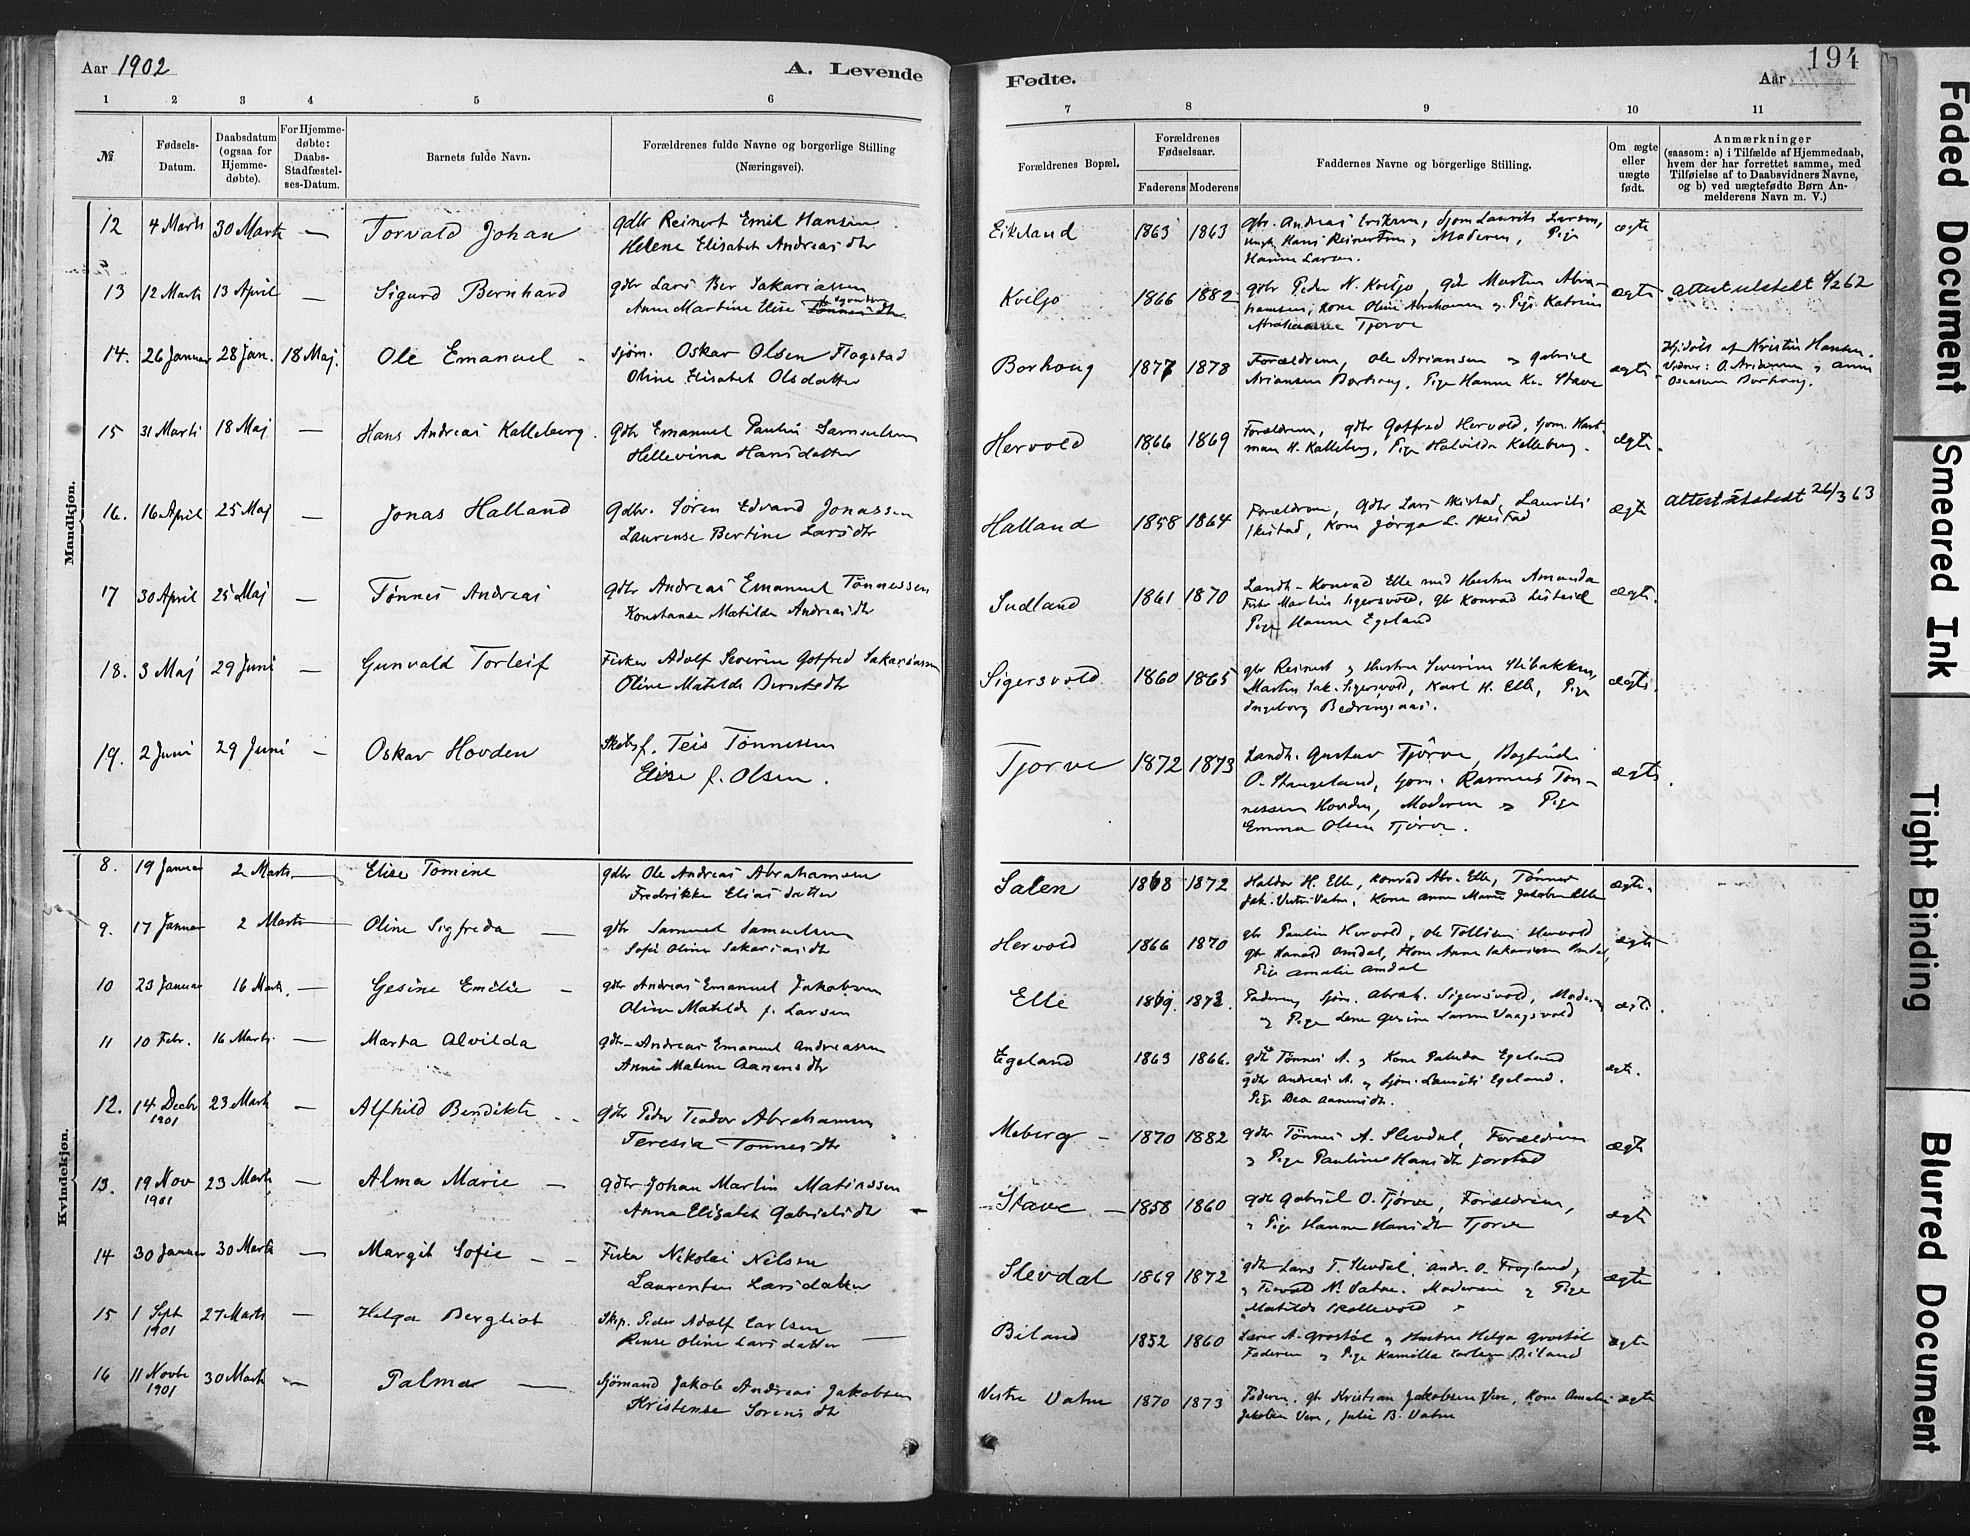 Aar 1902
A. Levende
1 2 3 4 5 6
№
Fødsels-Datum.
Daabsdatum (ogsaa for Hjemme-døbte).
For Hjemme-døbte: Daabs-Stadfæstel-ses-Datum.
Barnets fulde Navn.
Forældrenes fulde Navne og borgerlige Stilling
(Næringsvei).
Mandkjøn.
12 4 Marts 30 Marts — Torvald Johan gdbr Reinert Emil Hansen
Helene Elisabet Andreasdtr
13 12 Marts 13 April — Sigurd Bernhard gdbr Lars Ber Sakariassen
Anne Martine Elise Tønnesdtr
14. 26 Januar 28 Jan. 18 Maj. Ole Emanuel - sjøm. Oskar Olsen Flagstad
Oline Elisabet Olsdatter
15 31 Marts 18 Maj — Hans Andreas Kalleberg. gdbr Emanuel Paulin Samuelsen
Hellevina Hansdatter
16. 16 April 25 Maj — Jonas Halland gdbr. Søren Edvard Jonassen
Laurense Bertine Larsdtr
17 30 April 25 Maj — Tønnes Andreas gdbr Andreas Emanuel Tønnessen
Konstanse Matilde Andreasdtr
18. 3 Maj 29 Juni — Gunvald Torleif Fisker Adolf Severin Gotfred Sakariassen
Oline Matilde
19. 2 Juni 29 Juni — Oskar Hovden f. Teis Tønnessen
Elise f. Olsen.
Kvindekjøn.
8. 19 Januar 2 Marts — Elise Tomine gdbr Ole Andreas Abrahamsen
Fredrikke Eliasdatter
9. 17 Januar 2 Marts — Oline Sigfreda — gdbr Samuel Samuelsen
Sofie Oline Sakariasdtr
10 23 Januar 16 Marts. — Gesine Emilie — gdbr Andreas Emanuel Jakobsen
Oline Matilde f. Larsen
11 10 Febr. 16 Marts. — Marta Alvilda gdbr - Andreas Emanuel Andreassen
Anne Malene Aanensdtr
12. 14 Decbr 1901 23 Marts — Alfhild Bendikte - - gdbr Peder Teodor Abrahamsen
Teresia Tønnesdtr
13. 19 Nov 1901 23 Marts — Alma Marie — gdbr Johan Martin Matiassen
Anna Elisabet Gabrielsdtr
14 30 Januar 30 Marts — Margit Sofie - - Fisker Nikolai Nilsen
Laurentse Larsdatter
15 1 Sept 1901 27 Marts — Helga Bergliot Skip. Peder Adolf Carlsen
Oline Larsdatter
16 11 Novbr 1901 30 Marts — Palma — sjømand Jakob Andreas Jakobsen
Kristense Sørensdtr
Fødte.
Aar
194
7 8 9 10 11
Forældrenes Bopæl.
Forældrenes Fødselsaar.
Faderens Moderens
Faddernes Navne og borgerlige Stilling.
Om ægte eller uægte født.
Anmærkninger
(saasom: a) i Tilfælde af Hjemmedaab,
hvem der har forrettet samme, med
Tilføielse af to Daabsvidners Navne,
og b) ved uægtefødte Børn An-
melderens Navn m. V.)
Eikeland 1863 1863 gbr. Andreas Eriksen, Sjøm Laurits Larsen, ægte
ungk. Hans Reinertsen, Moderen, Pige
Hanne Larsen.
Kviljo 1866 1882 gdbr Peder N. Kviljo, gdr Morten Abra- ægte Attest utstedt 4/2 62
hamsen, Kone Oline Abrahamsen og Pige Katrine
Abrahamsen Tjørve
Borhoug 1877 1878 Forældrene, Ole Ariansen og Gabriel ægte Hjdøbt af Kristin Hansen.
Ariansen Borhoug, Pige Hanne Stave Vidner: O. Ariansen og Anna
Borhoug.
Hervold 1866 1869 Forældrene, gdbr Gotfred Hervold, Sjøm. Hart- ægte.
man H. Kalleberg, Pige Halvilda Kalleberg.
Halland 1858 1864 Forældrene, gdbr Lars Skistad, Laurits ægte Attest utstedt 26/3 63
Skistad, Kone Jørga L. Skistad
Sudland 1861 1870 Landh. Konrad Elle med Hustru Amanda ægte.
Fisker Martin Sigersvold, gbr Konrad
Pige Hanne Egeland
Sigersvold 1860 1865 gbr Reinert og Hustru Severine Stibakken, ægte.
Martin Sak. Sigersvold, Karl H. Elle, Pige
Ingeborg Bedringsaas.
Tjørve 1872 1873 Landh. Gustav Tjørve, ægte.
O. Stangeland, Sjøm. Rasmus Tøn-
nessen Hovden, Moderen og Pige
Emma Olsen Tjørve.
Salen 1868 1872 Haldor H. Elle, Konrad Abr. Elle, Tønnes ægte.
Jak. Vestre Vatne, Kone Anne Marie Jakobsen Elle
Hervold 1866 1870 gbr Paulin Hervold, Ole Tollisen Hervold ægte
gbr Harald Omdal, Kone Anne Sakariassen Omdal,
Pige Amalie Omdal
Elle 1869. 1872. Faderen, Sjøm. Abrah. Sigersvold, Moderen ægte.
og Pige Lene Gesine Larsen Vaagsvold
Egeland 1863 1866. gdbr Tønnes A. og Kone Egeland ægte.
gdbr Andreas A. og Sjøm. Laurits Egeland.
Pige Dea Aanensdtr.
Meberg — 1870 1882 gdbr Tønnes A. Slevdal, Forældrene ægte
og Pige Pauline Hansdtr Jørstad
Stave — 1858 1860 gdbr Gabriel O. Tjørve, Forældrene, ægte
og Pige Hanne Hansdtr Tjørve
Slevdal 1869 1872 gdbr Lars T. Slevdal, Andr. O. Frøyland, ægte
og Teovald N. Vatne. Moderen og Pige
Matilde Skollevold
Biland 1852 1860 Lærer A. Grostøl og Hustru Helga Grostøl ægte
Faderen og Pige Kamilla Carlsen Biland
Vestre Vatne 1870 1873 Faderen, gb Kristian Jakobsen Vere, Kone Amalie ægte
Jakobsen Vere, Julie B. Vatne
Faded Document
Smeared Ink
Tight Binding
Blurred Document